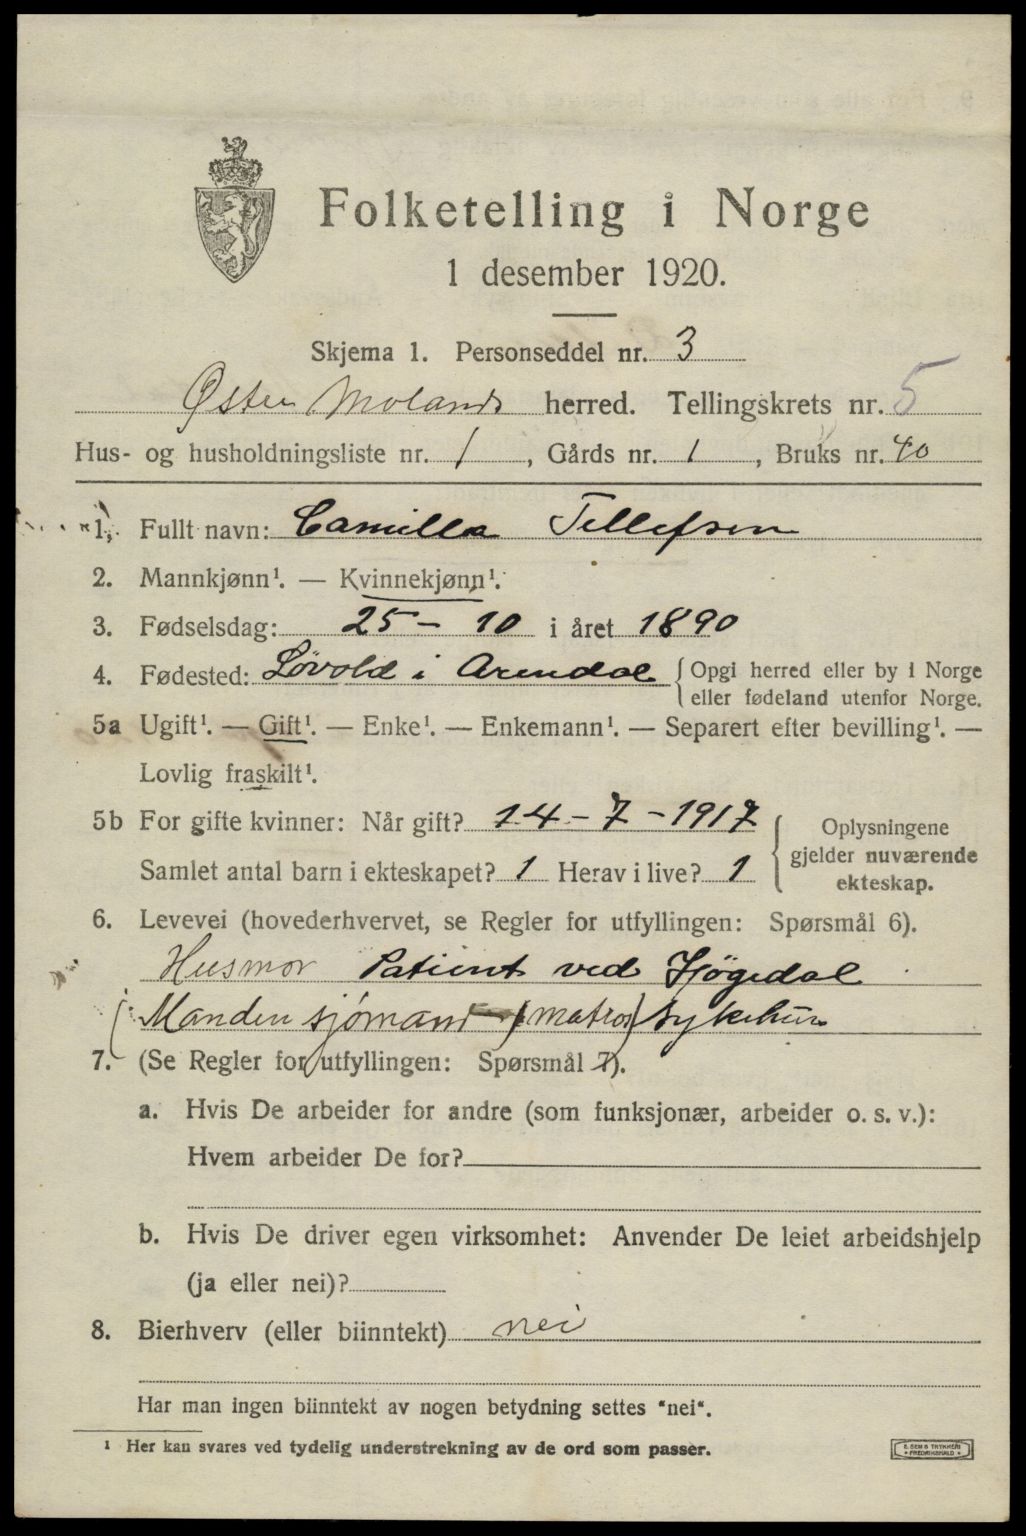 Folketelling i Norge
1 desember 1920.
Skjema 1. Personseddel nr. 3
Øster Molands herred. Tellingskrets nr. 5
Hus- og husholdningsliste nr. 1, Gårds nr. 1, Bruks nr. 40
1. Fullt navn: Camilla Tellefsen
2. Mannkjønn¹. — Kvinnekjønn¹.
3. Fødselsdag: 25 - 10 i året 1890
4. Fødested: Lövold i Arendal { Opgi herred eller by i Norge
eller fødeland utenfor Norge.
5a Ugift¹. — Gift¹. — Enke¹. — Enkemann¹. — Separert efter bevilling¹. —
Lovlig fraskilt¹.
5b For gifte kvinner: Når gift? 14 - 7 - 1917
Samlet antal barn i ekteskapet? 1 Herav i live? 1
{ Oplysningene
gjelder nuværende
ekteskap.
6. Levevei (hovederhvervet, se Regler for utfyllingen: Spørsmål 6).
Husmor Patient ved Högedal
(Manden sjømand (matros) Sykehus
7. (Se Regler for utfyllingen: Spørsmål 7).
a. Hvis De arbeider for andre (som funksjonær, arbeider o. s. v.):
Hvem arbeider De for?
b. Hvis De driver egen virksomhet: Anvender De leiet arbeidshjelp
(ja eller nei)?
8. Bierhverv (eller biinntekt) nei
Har man ingen biinntekt av nogen betydning settes "nei".
¹ Her kan svares ved tydelig understrekning av de ord som passer.
E. SEM'S TRYKKERI
FREDRIKSHALD